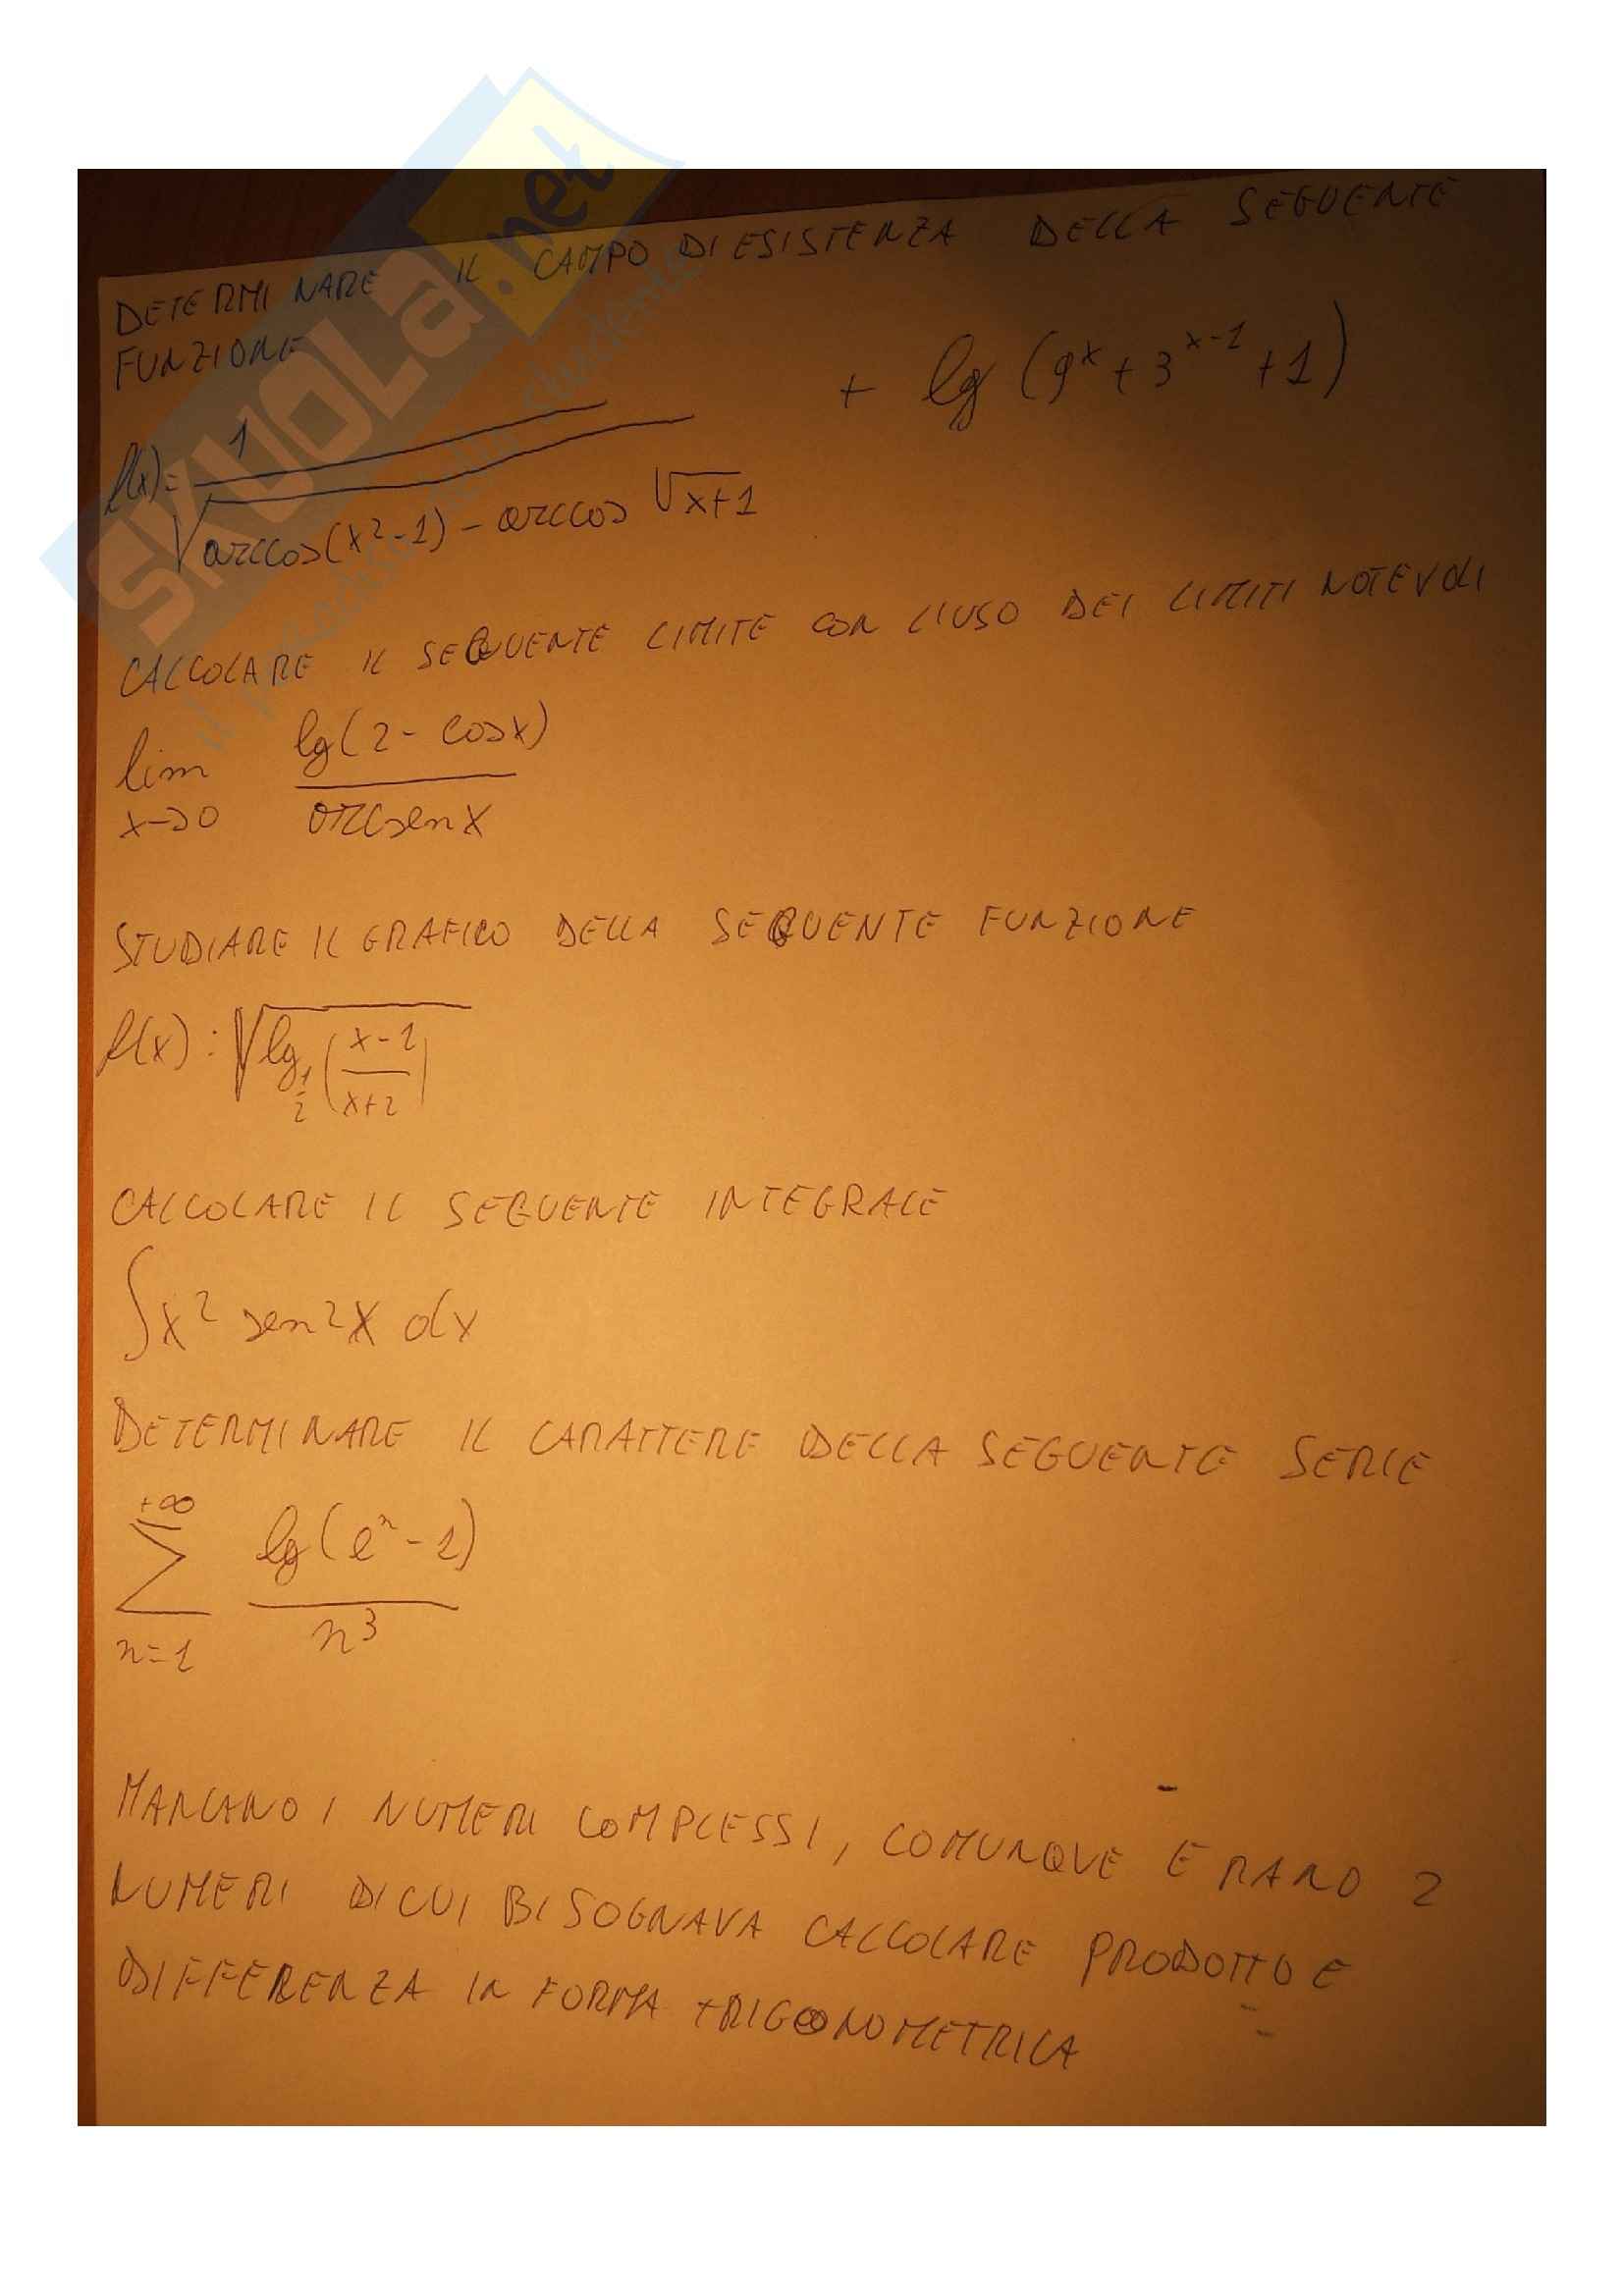 DETERMINARE IL CAMPO DI ESISTENZA DELLA SEGUENTE
FUNZIONE
f(x)= 1 / √(arccos(x²-1) - arccos √(x+1)) + lg (9ˣ + 3ˣ⁻¹ + 1)
CALCOLARE IL SEGUENTE LIMITE CON L'USO DEI LIMITI NOTEVOLI
lim x→0 lg(2 - cosx) / arcsenx
STUDIARE IL GRAFICO DELLA SEGUENTE FUNZIONE
f(x): √(lg 1/2 ((x-1)/(x+2)))
CALCOLARE IL SEGUENTE INTEGRALE
∫x² sen2x dx
DETERMINARE IL CARATTERE DELLA SEGUENTE SERIE
+∞ Σ n=1 lg(eⁿ-1) / n³
MANCANO I NUMERI COMPLESSI, COMUNQUE ERANO 2
NUMERI DI CUI BISOGNAVA CALCOLARE PRODOTTO E
DIFFERENZA IN FORMA TRIGONOMETRICA
SKUOLA.net